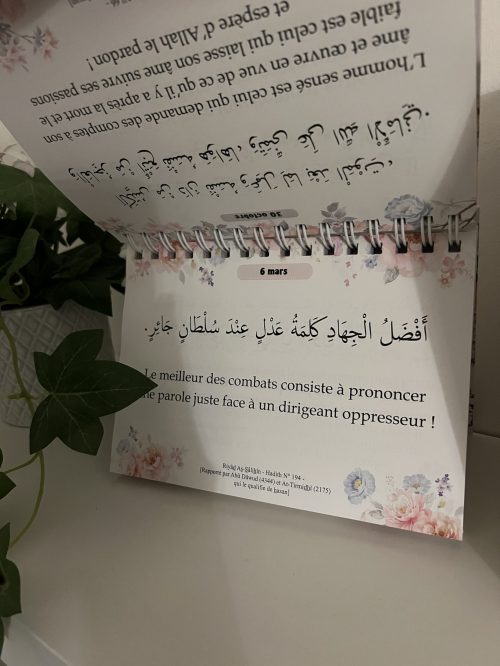 octobre
الْكَيِّسُ مَنْ دَانَ نَفْسَهُ وَعَمِلَ لِمَا بَعْدَ الْمَوْتِ،
وَالْعَاجِزُ مَنْ أَتْبَعَ نَفْسَهُ هَوَاهَا، وَتَمَنَّى عَلَى اللَّهِ الْأَمَانِيَّ.
L'homme sensé est celui qui demande des comptes à son
âme et œuvre en vue de ce qu'il y a après la mort et le
faible est celui qui laisse son âme suivre ses passions
et espère d'Allah le pardon !
6 mars
أَفْضَلُ الْجِهَادِ كَلِمَةُ عَدْلٍ عِنْدَ سُلْطَانٍ جَائِرٍ.
Le meilleur des combats consiste à prononcer
une parole juste face à un dirigeant oppresseur !
Riyâḍ Aṣ-Ṣâliḥîn - Hadith N° 194 -
[Rapporté par Abû Dâwud (4344) et At-Tirmidhî (2175)
qui le qualifie de ḥasan]